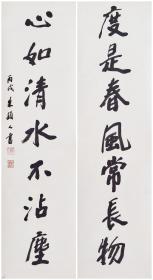 度是春風常長物
心如清水不沾塵
丙戌
朱穎人書